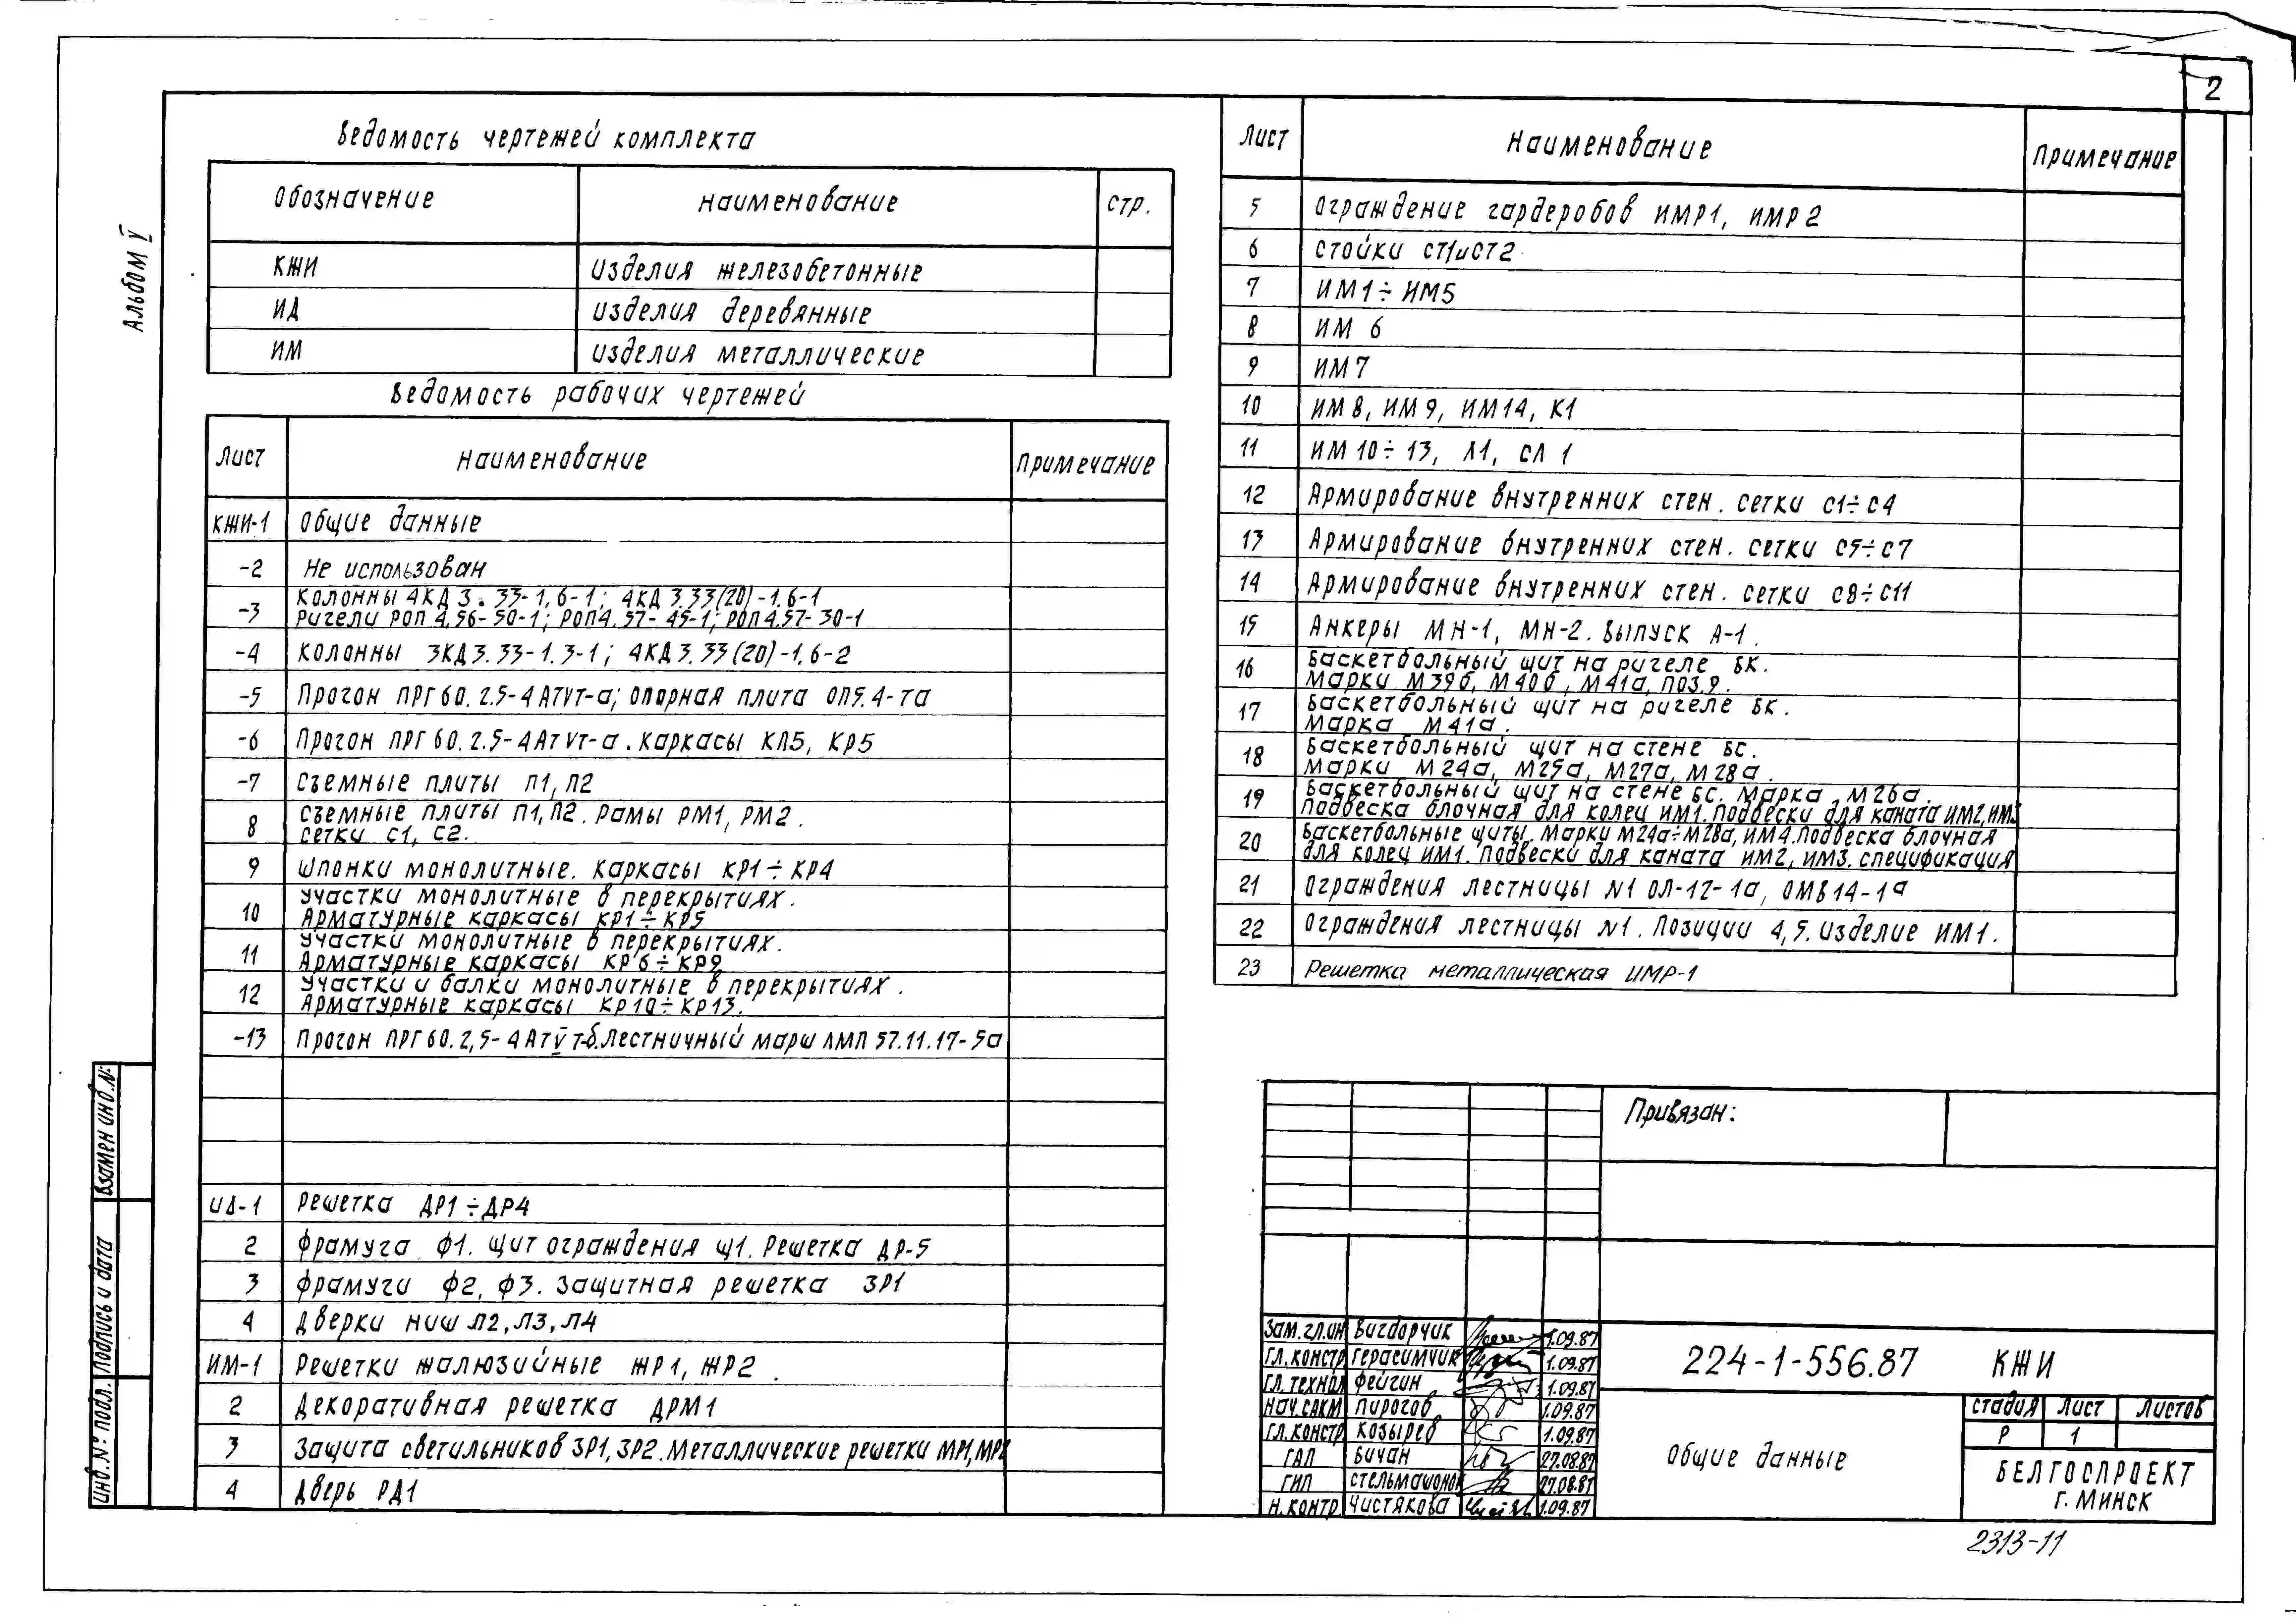 2
Альбом V
Ведомость чертежей комплекта
Обозначение Наименование стр.
КЖИ Изделия железобетонные
ИД Изделия деревянные
ИМ Изделия металлические
Ведомость рабочих чертежей
Лист Наименование Примечание
КЖИ-1 Общие данные
-2 Не использован
-3 Колонны 4КД 3.33-1,6-1; 4КД 3.33(20)-1.6-1
Ригели РОП 4,56-50-1; РОП4.57-45-1; РОП4.57-30-1
-4 Колонны 3КД3.33-1.3-1; 4КД3.33(20)-1.6-2
-5 Прогон ПРГ60.2.5-4АтVт-а; опорная плита ОП5.4-та
-6 Прогон ПРГ60.2.5-4АтVт-а. Каркасы КП5, КР5
-7 Съемные плиты П1, П2
8 Съемные плиты П1, П2. Рамы РМ1, РМ2.
Сетки С1, С2.
9 Шпонки монолитные. Каркасы КР1÷КР4
10 Участки монолитные в перекрытиях.
Арматурные каркасы КР1÷КР5
11 Участки монолитные в перекрытиях.
Арматурные каркасы КР6÷КР9
12 Участки и балки монолитные в перекрытиях.
Арматурные каркасы КР10÷КР13.
-13 Прогон ПРГ60.2,5-4АтVт-б. Лестничный марш ЛМП 57.11.17-5а
ИД-1 Решетка ДР1÷ДР4
2 Фрамуга Ф1. Щит ограждения Щ1. Решетка ДР-5
3 Фрамуги Ф2, Ф3. Защитная решетка ЗР1
4 Дверки ниш Л2, Л3, Л4
ИМ-1 Решетки жалюзийные ЖР1, ЖР2.
2 Декоративная решетка ДРМ1
3 Защита светильников ЗР1, ЗР2. Металлические решетки МР1, МР2
4 Дверь РД1
Лист Наименование Примечание
5 Ограждение гардеробов ИМР1, ИМР2
6 Стойки СТ1 и СТ2
7 ИМ1÷ИМ5
8 ИМ 6
9 ИМ7
10 ИМ8, ИМ9, ИМ14, К1
11 ИМ10÷13, Л1, СЛ 1
12 Армирование внутренних стен. Сетки С1÷С4
13 Армирование внутренних стен. Сетки С5÷С7
14 Армирование внутренних стен. Сетки С8÷С11
15 Анкеры МН-1, МН-2. Выпуск А-1.
16 Баскетбольный щит на ригеле БК.
Марки М39б, М40б, М41а, поз.9.
17 Баскетбольный щит на ригеле БК.
Марка М41а.
18 Баскетбольный щит на стене БС.
Марки М24а, М25а, М27а, М28а.
19 Баскетбольный щит на стене БС. Марка М26а.
Подвеска блочная для колец ИМ1. Подвески для каната ИМ2, ИМ3
20 Баскетбольные щиты. Марки М24а÷М28а, ИМ4. Подвеска блочная
для колец ИМ1. Подвески для каната ИМ2, ИМ3. Спецификация
21 Ограждения лестницы №1 ОЛ-12-1а, ОМВ14-1а
22 Ограждения лестницы №1. Позиции 4, 5. Изделие ИМ1.
23 Решетка металлическая ИМР-1
Взамен инв.№
Подпись и дата
Инв.№ подл.
Привязан:
Зам.гл.ин Вигдорчик 1.09.87
Гл.констр Герасимчик 1.09.87
Гл.технол Фейгин 1.09.87
Нач.САКМ Пирогов 1.09.87
Гл.констр Козырев 1.09.87
ГАП Бичан 27.08.87
ГИП 27.08.87
Н.контр. Чистякова 1.09.87
224-1-556.87 КЖИ
Общие данные
Стадия Лист Листов
Р 1
БЕЛГОСПРОЕКТ
г. Минск
2313-11